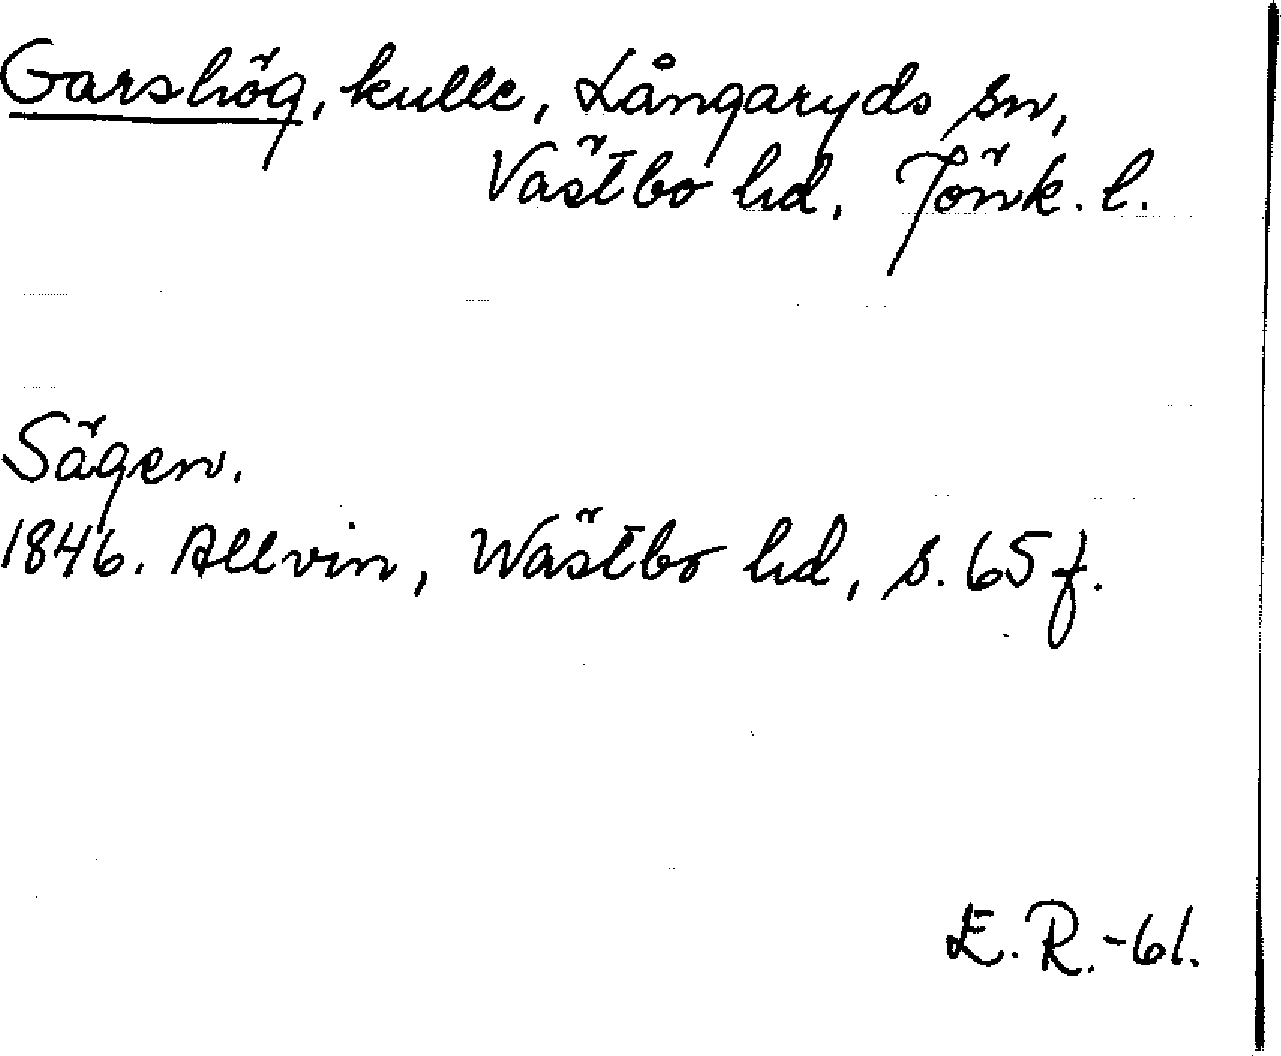 Garshög, kulle, Långaryds sn,
Västbo hd, Jönk. l.
Sägen.
1846. Allvin, Wästbo hd, s. 65 f.
E. R. -61.